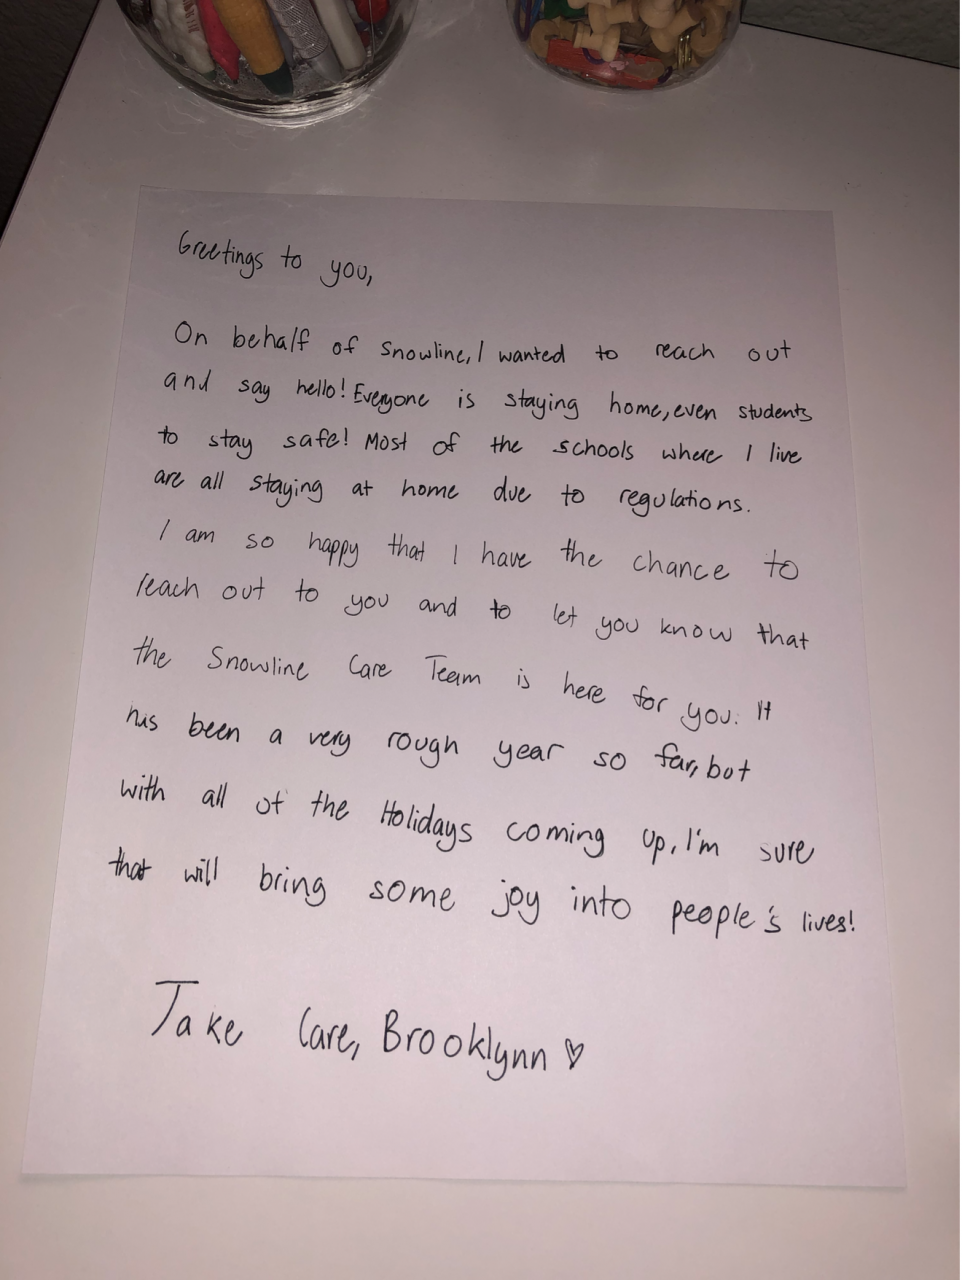 Greetings to you,
On behalf of Snowline, I wanted to reach out
and say hello! Everyone is staying home, even students
to stay safe! Most of the schools where I live
are all staying at home due to regulations.
I am so happy that I have the chance to
reach out to you and to let you know that
the Snowline Care Team is here for you. It
has been a very rough year so far, but
with all of the Holidays coming up, I'm sure
that will bring some joy into people's lives!
Take Care, Brooklynn ♡